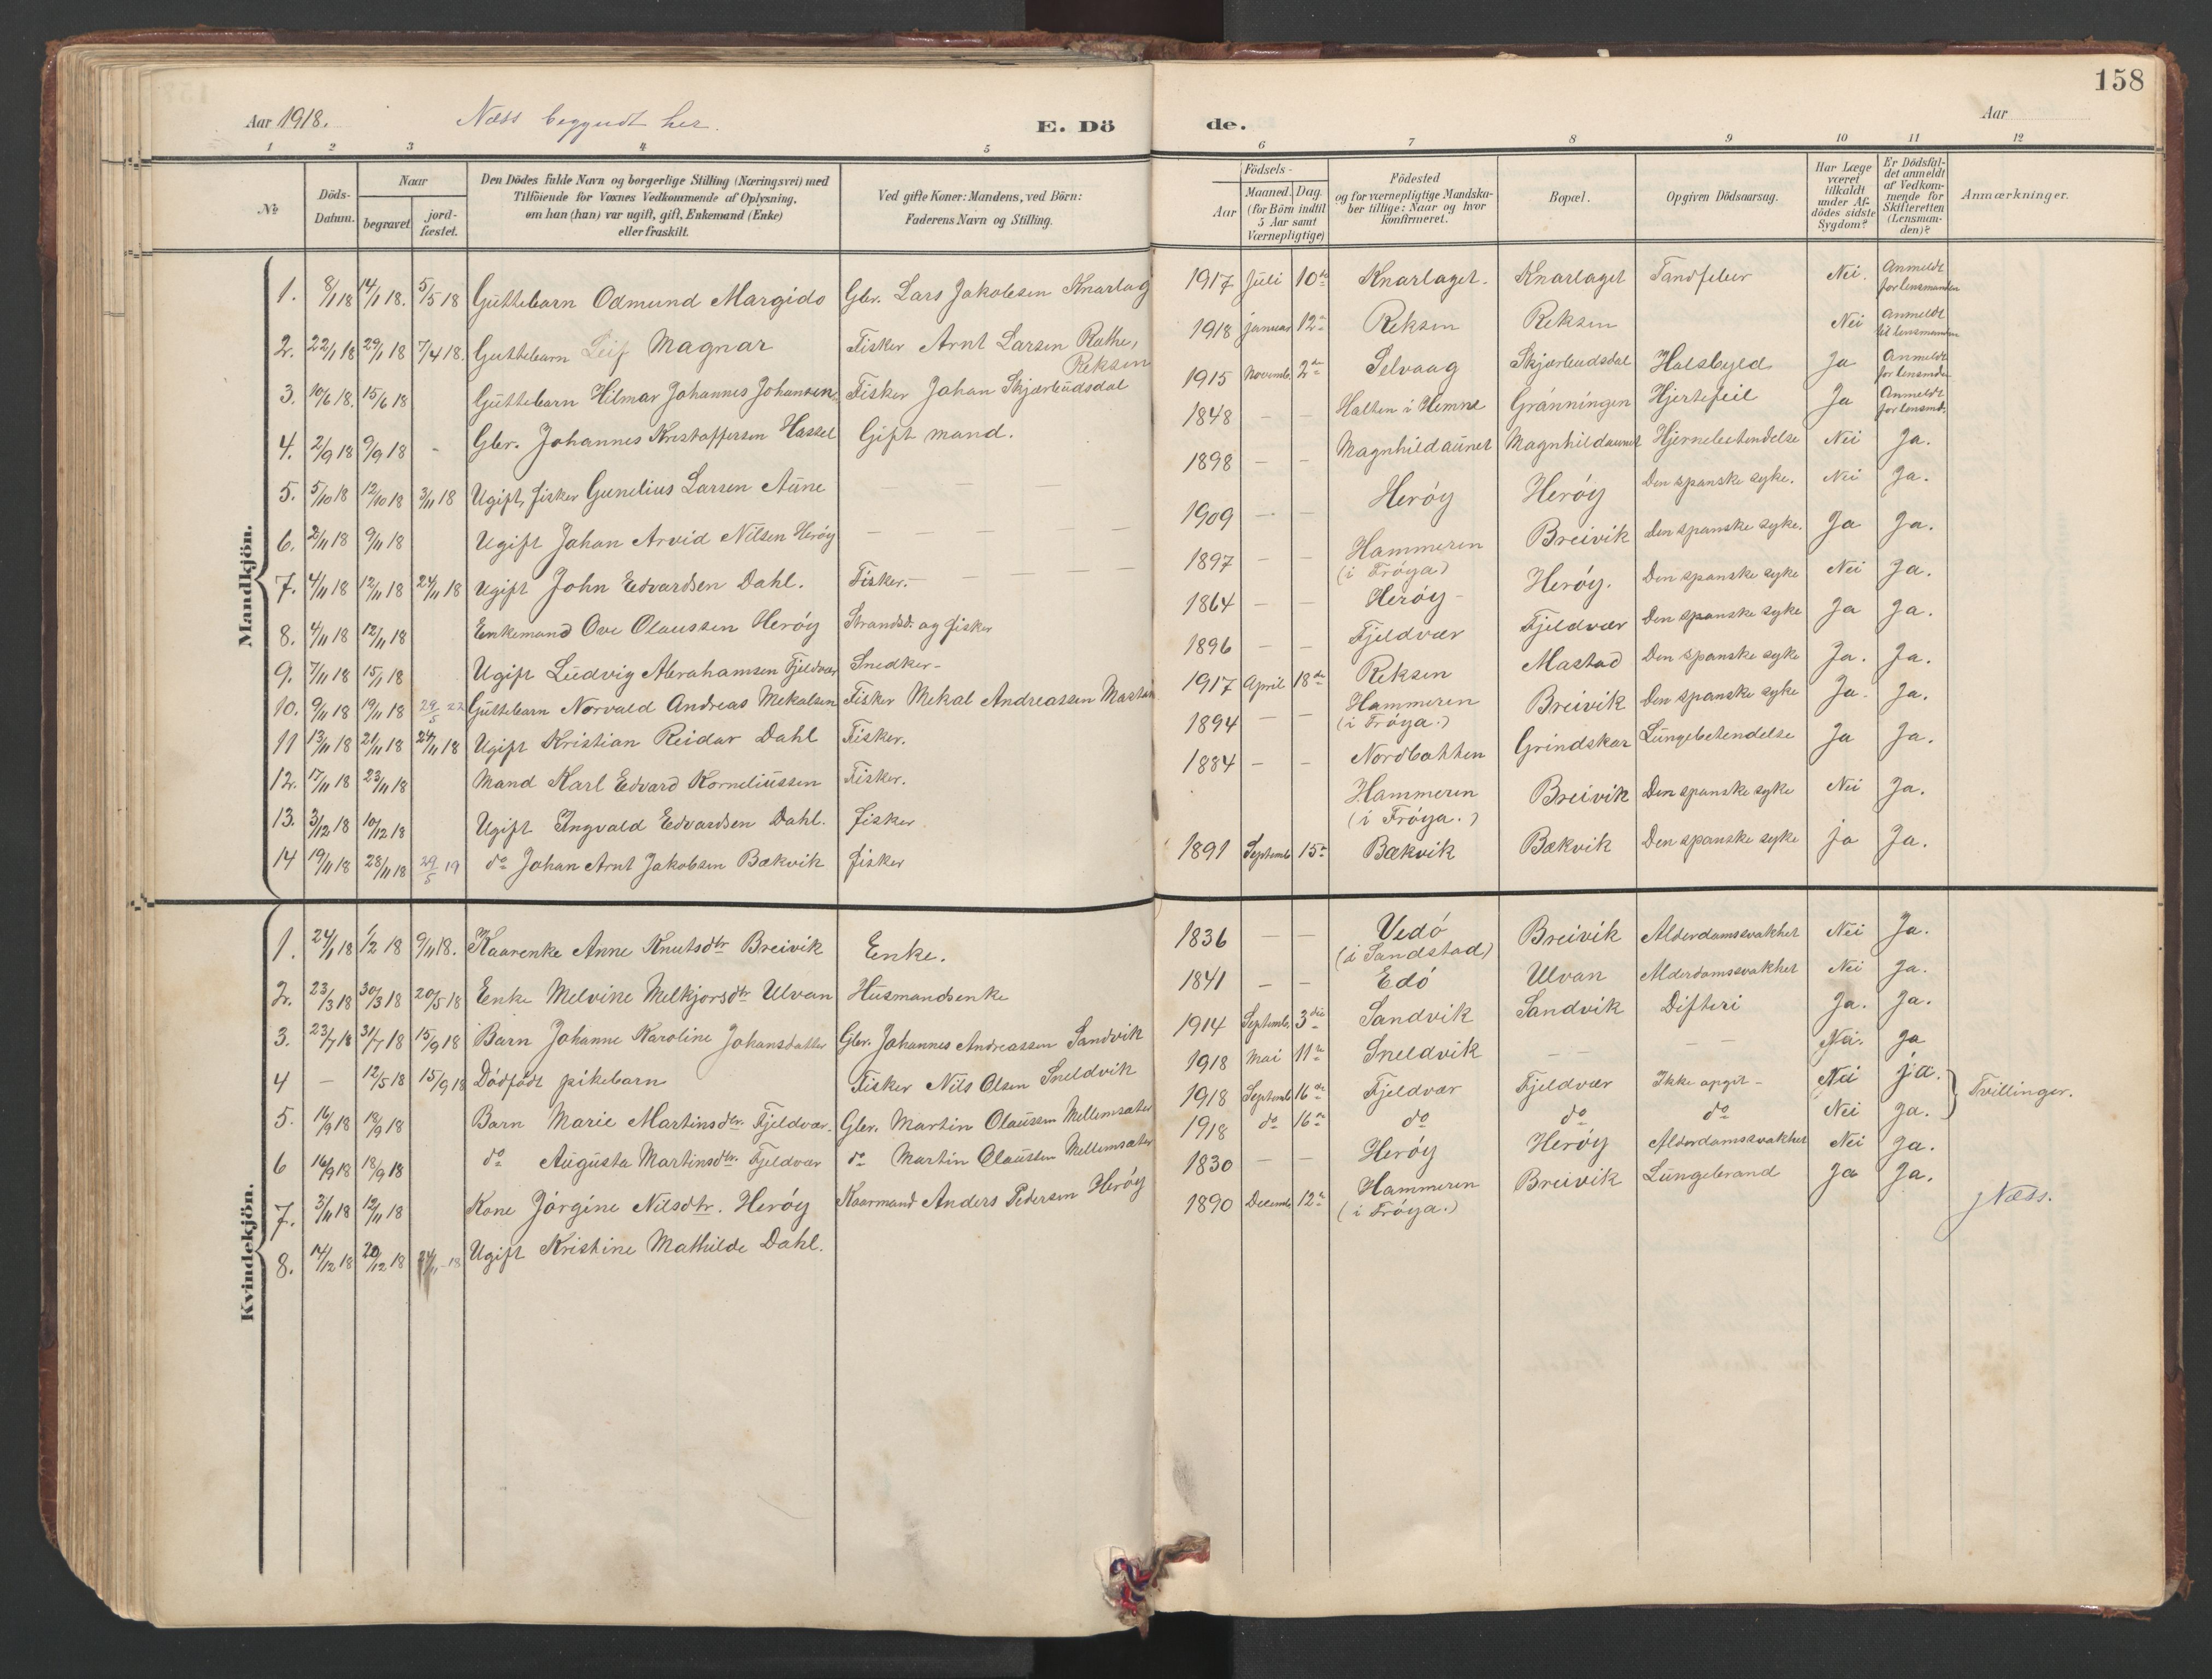 158
Aar 1918. Næss begyndt her. E. Dö de. Aar
1 2 3 4 5 6 7 8 9 10 11 12
No
Döds-Datum.
Naar
begravet
jord-fæstet.
Den Dödes fulde Navn og borgerlige Stilling (Næringsvei) med
Tilföiende for Voxnes Vedkommende af Oplysning,
om han (hun) var ugift, gift, Enkemand (Enke)
eller fraskilt.
Ved gifte Koner: Mandens, ved Börn:
Faderens Navn og Stilling.
Födsels-
Aar
Maaned. Dag.
(for Börn indtil
5 Aar samt
Værnepligtige)
Födested
og for værnepligtige Mandska-
ber tillige: Naar og hvor
konfirmeret.
Bopæl.
Opgiven Dödsaarsag.
Har Læge
været
tilkaldt
under Af-
dödes sidste
Sygdom?
Er Dödsfal-
det anmeldt
af Vedkom-
mende for
Skifteretten
(Lensman-
den)?
Anmærkninger.
Mandkjön.
1. 8/1 18 14/1 18. 5/5 18 Guttebarn Odmund Margido Gbr. Lars Jakobsen Knarlag 1917 Juli 10de Knarlaget. Knarlaget Tandfeber Nei. Anmeldt for lensmanden
2. 22/1 18 29/1 18 7/4 18. Guttebarn Leif Magnar Fisker Arnt Larsen Rathe, Reksen 1918 januar 12te Reksen Reksen Nei Anmeldt til lensmanden
3. 10/6 18. 15/6 18 Guttebarn Hilmar Johannes Johansen Fisker Johan Skjærbudsdal 1915 Novemb. 2de Selvaag Skjærbudsdal Halsbyld Ja Anmeldt for lensmden
4. 2/9 18 9/9 18 - Gbr. Johannes Kristoffersen Hassel Gift mand. 1848 — — Halten i Hemne Grånningen Hjertefeil Ja Anmeldt for lensmd.
5. 5/10 18 12/10 18 3/11 18 Ugift, fisker Gunelius Larsen Aune — — — 1898 — — Magnhildaunet Magnhildaunet Hjernebetendelse Nei Ja.
6. 2/11 18 9/11 18 Ugift Johan Arvid Nilsen Herøy — — — — 1909 — — Herøy Herøy Den spanske syke. Nei Ja.
7. 4/11 18 12/11 18 24/11 18 Ugift John Edvardsen Dahl. Fisker. — — — — 1897 — — Hammeren (i Frøya) Breivik den spanske syke. Ja Ja.
8. 4/11 18 12/11 18 Enkemand Ove Olaussen Herøy Strandsd. og fisker 1864 — — Herøy - Herøy. Den spanske syke Nei Ja.
9. 7/11 18 15/11 18 Ugift Ludvig Abrahamsen Fjeldvær Snedker - 1896 — — Fjeldvær Fjeldvær Den spanske syke Ja Ja.
10. 9/11 18 19/11 18 29/5 22 Guttebarn Norvald Andreas Mekalsen Fisker Mekal Andreassen Mastad 1917 April 18de Reksen Mastad Den spanske syke Ja. Ja.
11 13/11 18 21/11 18 24/11 18 Ugift Kristian Reidar Dahl Fisker. 1894 — — Hammeren (i Frøya.) Breivik Den spanske syke Ja. Ja.
12. 17/11 18 23/11 18 Mand Karl Edvard Korneliussen Fisker. 1884 — — Nordbotten Grindskar Lungebetendelse Ja Ja.
13. 3/12 18 10/12 18 Ugift Ingvald Edvardsen Dahl. fisker Hammeren (i Frøya.) Breivik Den spanske syke Nei Ja.
14 19/11 18 28/11 18 29/5 19 do Johan Arnt Jakobsen Bækvik fisker 1891 Septemb 15de Bækvik Bækvik Den spanske syke ja Ja.
Kvindekjön.
1. 24/1 18 1/2 18 9/11 18. Kaarenke Anne Knutsdtr Breivik Enke. 1836 — — Vedø (i Sandstad) Breivik Alderdomssvakhet Nei Ja.
2. 23/3 18 30/3 18 20/5 18 Enke Melvine Melkjorsdtr Ulvan Husmandsenke 1841 — — Edø Ulvan Alderdomssvakhet Nei Ja.
3. 23/7 18 31/7 18 15/9 18 Barn Johanne Karoline Johansdatter Gbr. Johannes Andreassen Sandvik 1914 Septemb. 3die Sandvik Sandvik Difteri Ja. Ja.
4 — 12/5 18 15/9 18 Dødfødt pikebarn Fisker Nils Olsen Sneldvik 1918 Mai 11te Sneldvik — — — — Nei. Ja
5. 16/9 18 18/9 18 Barn Marie Martinsdtr. Fjeldvær. Gbr. Martin Olaussen Mellemsæter 1918 Septemb 16de Fjeldvær Fjeldvær Ikke opgit - Nei ja. Tvillinger.
6 16/9 18 18/9 18 do Augusta Martinsdtr. Fjeldvær do Martin Olaussen Mellemsæter 1918 do 16de do do do Nei Ja.
7. 3/11 18 12/11 18 Kone Jørgine Nilsdtr. Herøy Kaarmand Anders Pedersen Herøy 1830 — — Herøy Herøy Alderdomssvakhet Nei Ja.
8. 14/12 18 20/12 18 24/11-18 Ugift Kristine Mathilde Dahl. 1890 Decemb 12te Hammeren (i Frøya.) Breivik Lungebrand Ja Ja.
Næss.